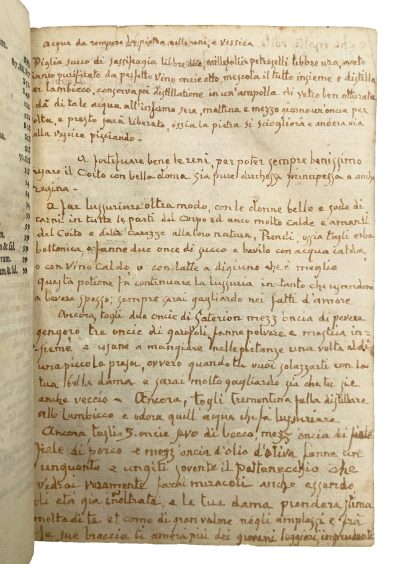 Acqua da rompere la pietra nelle reni, e vessica
Piglia succo di sassifragia libbre due, millefolii e petroselli libbre una, aceto
bianco purificato da perfetto vino oncie otto, mescola il tutto insieme e distilla
et lambicco, conserva poi distillatione in un'ampolla di vetro ben otturata
dà di tale acqua all'infermo sera, mattina e mezzo giorno un'oncia per
volta, e presto sarà liberato, ossia la pietra si scioglierà e anderà via
alla vescica pisciando.
A fortificare bene le reni, per poter sempre benissimo
usare il Coito con bella donna sia pure duchessa principessa o anche
regina.
A far lussuriare oltre modo, con le donne belle e sode di
carni in tutte le parti del Corpo ed anco molto calde e amanti
del Coito e della carezze alla loro natura, Prendi, ossia togli erba
bettonica e fanne due once di succo e bevilo con acqua calda,
o con vino caldo o con latte a digiuno che è meglio
questa potione fa continuare la lussuria in tanto che usandone
a bevere spesso, sempre sarai gagliardo nei fatti d'amore
Ancora, togli due oncie di Saterion mezz'oncia di pevere
gengero tre oncie di garofoli, fanne polvere e mestica in-
sieme e usane a mangiare nelle pietanze una volta al dì
ovvero quando tu vuoi solazzarti con la
tua bella dama e sarai molto gagliardo sia che tu sie
anche veccio - Ancora, togli trementina falla distillare
allo lambicco e odora quell'acqua che fa lussuriare.
Ancora togli 5 oncie sevo di becco, mezz oncia di fiele
fiele di porco e mezz oncia d'olio d'oliva fanne un
unguento e ungiti sovente il pettenecchio che
vedrai veramente farai miracoli anche essendo
di età già inoltrata, e la tua dama prenderà stima
molta di te et come di gran valore negli amplessi e fra
le sue braccia ti amerà più dei giovani leggeri, imprudente